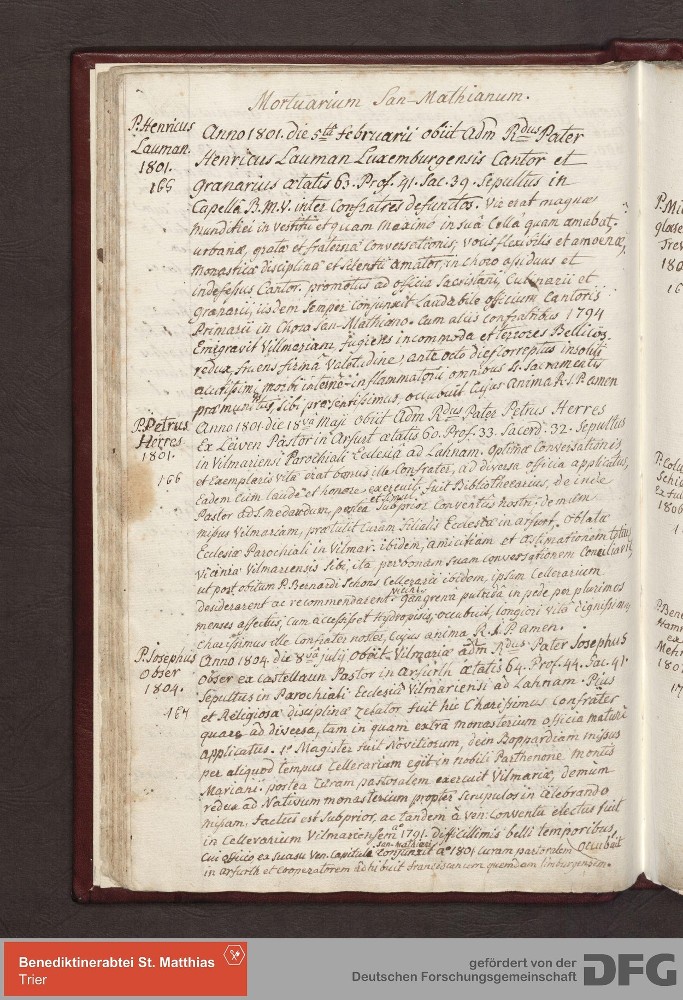 Mortuarium San-Mathianum.
P. Henricus
Lauman.
1801.
165
Anno 1801. die 5ta februarii obiit Adm Rdus Pater
Henricus Lauman Luxemburgensis Cantor et
granarius ætatis 63. Prof. 41. Sac. 39. Sepultus in
Capellâ B.M.V. inter Confratres defunctos. Vir erat magnæ
munditiei in vestitu et quam maximè in suâ Cellâ quam amabat,
urbanæ, gratæ et fraternæ Conversationis, vocis flexibilis et amoenæ,
monasticæ disciplinæ et silentii amator, in choro assiduus et
indefessus Cantor. promotus ad officia Sacristani, Culinarii et
granarii, iisdem semper conjunxit laudabile officium Cantoris
Primarii in Choro San-Mathiano. Cum aliis confratribus 1794
Emigravit Villmariam fugiens incommoda et terrores Bellicos,
redux, fruens firmâ valetudine, ante octo dies correptus insoliti
acutissimi morbi internè inflammatorii omnibus S. Sacramentis
præmunitus, sibi præsentissimus, occubuit Cujus Anima R. I. P. amen
P. Petrus
Herres
1801.
166
Anno 1801. die 18va Maji obiit Adm Rdus Pater Petrus Herres
Ex Leiven Pastor in Arfurt ætatis 60. Prof. 33. Sacerd. 32. Sepultus
in Vilmariensi Parochiali Ecclesiâ ad Lahnam. Optimæ Conversationis
et Exemplaris vitæ erat bonus ille Confrater, ad diversa officia applicatus,
Eadem cum laude et honore exercuit, fuit Bibliothecarius, deinde
et simul
Pastor ad S. Medardum, postea Subprior Conventûs nostri, demum
missus Vilmariam, prætulit Curam filialis Ecclesiæ in arfurt, oblatæ
Ecclesiæ Parochiali in Vilmar. ibidem, amicitiam et æstimationem totius
Viciniæ Vilmariensis sibi, ita per bonam suam Conversationem Conciliavit,
ut post obitum P. Bernardi Schons Cellerarii ibidem, ipsum Cellerarium
desiderarent ac recommendarent. gangrenâ putridâ in pede per plurimos
menses affectus, cum accessisset Hydropisis, occubuit, longiori vitâ dignissimus,
charissimus ille Confrater noster, Cujus anima R. I. P. amen.
P. Josephus
Obser
1804.
167
Anno 1804. die 8va julij Obiit Vilmariæ adm Rdus Pater Josephus
Obser ex Castellaun Pastor in Arfurth ætatis 64. Prof. 44. Sac. 41.
Sepultus in Parochiali Ecclesiâ Vilmariensi ad Lahnam. Pius
et Religiosæ disciplinæ zelator fuit hic Charissimus Confrater
quare ad diversa, tam in quam extrà monasterium officia maturè
applicatus. 1o Magister fuit Novitiorum, dein Boppardiam missus
per aliquod tempus Cellerariam egit in nobili Parthenone montis
Mariani. postea Curam pastoralem exercuit Vilmariæ, demum
redux ad Nativum monasterium propter Scrupulos in Celebrando
missam, factus est Subprior, ac tandem à ven. Conventu electus fuit
in Cellerarium Vilmariensem ao 1791. difficillimis belli temporibus,
san-mathiani
Cui officio ex suasu Ven. Capituli conjunxit ao 1801 curam pastoralem Occubuit
in Arfurth et cooperatorem adhibuit franciscanum quemdam limburgensem.
P. Mi
1806
P. Bene
ex
Benediktinerabtei St. Matthias
Trier
gefördert von der
Deutschen Forschungsgemeinschaft
DFG